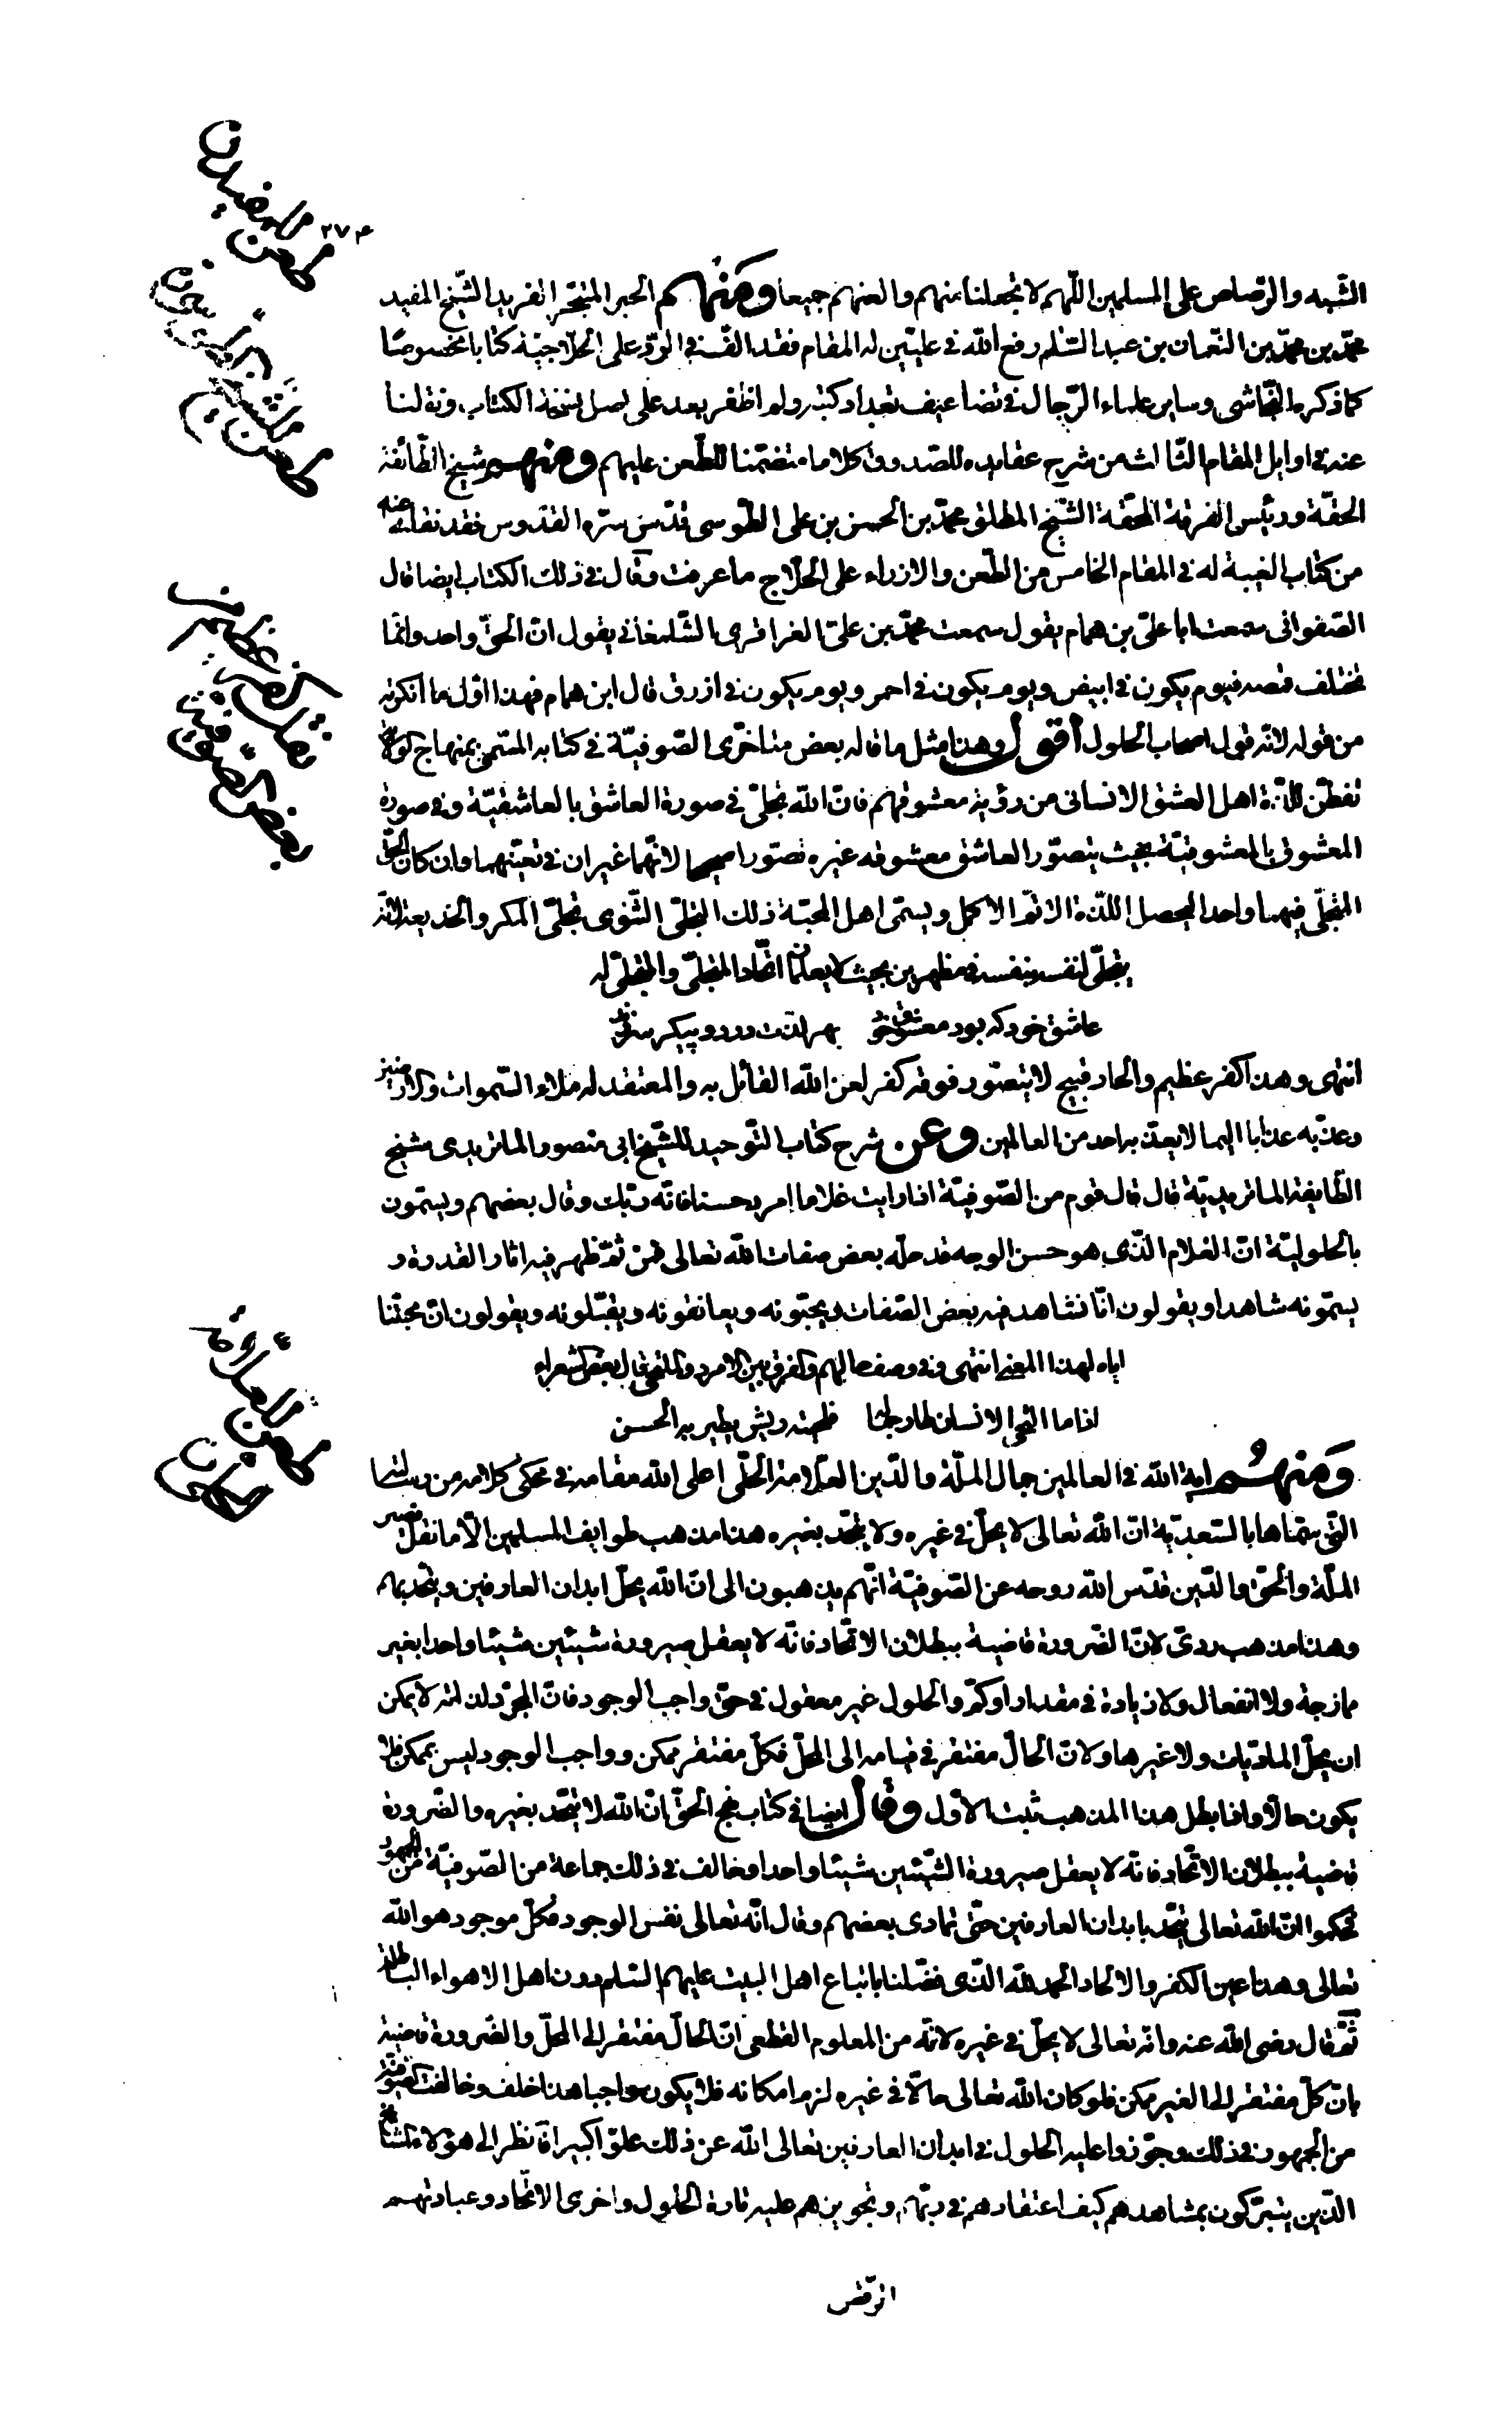 ٢٧٤
طعن المفيد ره
الشّبه والرّصاص على المسلمين اللّهم لا تجعلنا منهم والعنهم جميعا ومنهم الحبر المتبحّر الفريد الشّيخ المفيد
محمّد بن محمّد بن النّعمان بن عبد السّلم رفع اللّه في علّيّين له المقام فقد الّف في الردّ على الحلّاجيّة كتابا مخصوصا
كما ذكره النّجاشى وساير علماء الرّجال في تضاعيف تعداد كتبه ولم اظفر بعد على اصل نسخة الكتاب ونقلنا
عنه في اوايل المقام الثّالث من شرح عقايده للصدوق كلاما متضمّنا للطّعن عليهم ومنهم شيخ الطّائفة
الحقّة ورئيس الفرقة المحقّة الشّيخ المطلق محمّد بن الحسن بن على الطّوسى قدّس سرّه القدّوس فقد نقلنا عنه
من كتاب الغيبة له في المقام الخامس من الطّعن والازراء على الحلّاج ما عرفت وقال في ذلك الكتاب ايضا قال
الصّفوانى سمعت ابا علىّ بن همام يقول سمعت محمّد بن علىّ العزاقرى الشّلمغانى يقول انّ الحقّ واحد وانّما
تختلف قمصه فيوم يكون في ابيض ويوم يكون في احمر ويوم يكون في ازرق قال ابن همام فهذا اوّل ما انكرته
من قوله لانّه قول اصحاب الحلول أقول وهذا مثل ما قاله بعض متاخّرى الصّوفيّة في كتابه المسمّى بمنهاج
تفطّن للذّة اهل العشق الانسانى من رؤية معشوقهم فانّ اللّه تجلّى في صورة العاشق بالعاشقيّة وفي صورة
المعشوق بالمعشوقيّة بحيث يتصوّر العاشق معشوقه غيره تصوّرا صحيحا لانّهما غيران في تعيّنهما وان كان الحقّ
المتجلّى فيهما واحدا ليحصل اللّذة الاتمّ الاكمل ويسمّى اهل المحبّة ذلك التجلّى الثّنوى تجلّى المكر والخديعة لانّه
يتجلّى لنفسه بنفسه في مظهرين بحيث لا يعلمان اتّحاد المتجلّى والمتجلّى له
عاشق خود كه بود معشوق خود بهر لذّت در دو پيكر شد
انتهى وهذا كفر عظيم والحاد قبيح لا يتصوّر فوقه كفر لعن اللّه القائل به والمعتقد له ملاء السّموات والارضين
وعذّبه عذابا اليما لا يعذّب به احد من العالمين وعن شرح كتاب التّوحيد للشّيخ ابى منصور الماتريدى شيخ
الطّايفة الماتريديّة قال قال قوم من الصّوفيّة اذا رايت غلاما امرد حسنا فانّه ربّك وقال بعضهم ويسمّون
بالحلوليّة انّ الغلام الّذى هو حسن الوجه قد حلّه بعض صفات اللّه تعالى فمن ثمّ ظهر فيه اثار القدرة و
يسمّونه شاهدا ويقولون انّا نشاهد فيه بعض الصّفات ويحبّونه ويعانقونه ويقبّلونه ويقولون انّ محبّتنا
اياه لهذا المعنى انتهى وفى وصف حالهم والفرق بين الامرد والملتحى قال بعض الشعراء
اذا ما التحى الانسان طار فلحيته ريش يطير به الحسن
ومنهم اية اللّه في العالمين جمال الملّة والدّين العلّامة الحلّى اعلى اللّه مقامه في محكى كلامه من رسالته
التّى سمّاها بالسّعديّة انّ اللّه تعالى لا يحلّ في غيره ولا يتّحد بغيره هذا مذهب طوايف المسلمين الّا ما نقل نصير
الملّة والحقّ والدّين قدّس اللّه روحه عن الصّوفيّة انّهم يذهبون الى انّ اللّه يحلّ ابدان العارفين ويتّحد بهم
وهذا مذهب ردىّ لانّ الضّرورة قاضية ببطلان الاتّحاد فانّه لا يعقل صيرورة شيئين شيئا واحدا بغير
ممازجة ولا انفعال ولا زيادة في مقدار او كمّ والحلول غير معقول في حقّ واجب الوجود فانّ المجرّد لذاته لا يمكن
ان يحلّ الماديّات ولا غيرها ولانّ الحالّ مفتقر في قيامه الى المحلّ فكلّ مفتقر ممكن وواجب الوجود ليس بممكن فلا
يكون حالّا واذا بطل هذا المذهب ثبت الاوّل وقال ايضا في كتاب نهج الحقّ انّ اللّه لا يتّحد بغيره والضّرورة
قاضية ببطلان الاتّحاد فانّه لا يعقل صيرورة الشّيئين شيئا واحدا وخالف في ذلك جماعة من الصّوفيّة من الجمهور
فحكموا انّ اللّه تعالى يتّحد بابدان العارفين حتّى تمادى بعضهم وقال انّه تعالى نفس الوجود فكلّ موجود هو اللّه
تعالى وهذا عين الكفر والالحاد الحمد للّه الّذى فضّلنا باتباع اهل البيت عليهم السّلم دون اهل الاهواء الباطلة
ثمّ قال رضى اللّه عنه وانّه تعالى لا يحلّ في غيره لانّه من المعلوم القطعى انّ الحالّ مفتقر الى المحلّ والضّرورة قاضية
بانّ كلّ مفتقر الى الغير ممكن فلو كان اللّه تعالى حالّا في غيره لزم امكانه فلا يكون واجبا هذا خلف وخالفت الصّوفيّة
من الجمهور في ذلك وجوّزوا عليه الحلول في ابدان العارفين تعالى اللّه عن ذلك علوّا كبيرا فانظر الى هؤلاء المشايخ
الّذين يتبرّكون بمشاهدهم كيف اعتقادهم في ربّهم وتجويزهم عليه تارة الحلول واخرى الاتّحاد وعبادتهم
نقل كفر عظيم من بعض الصّوفيّة
طعن العلّامة